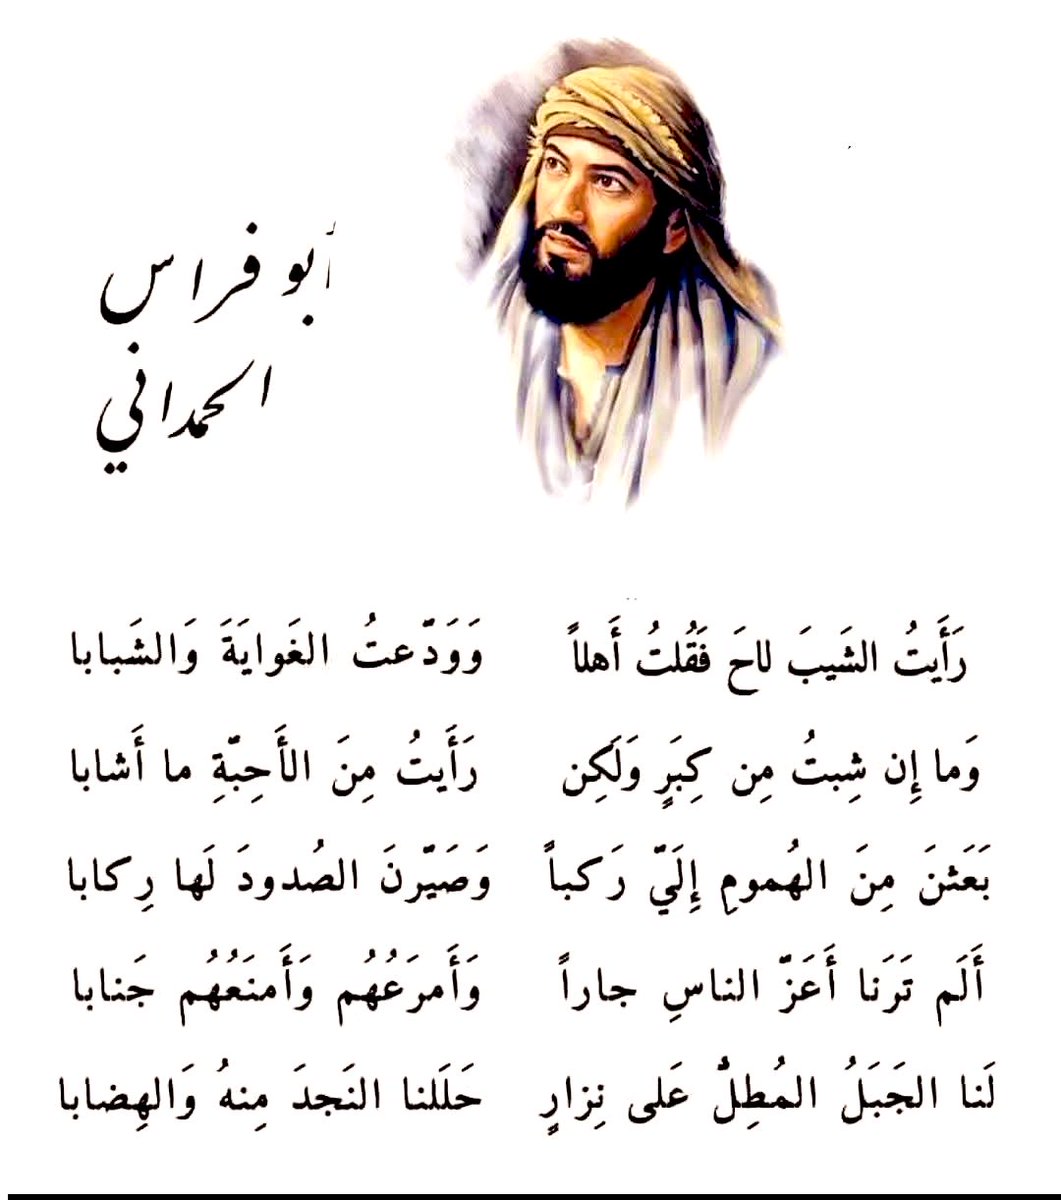 أبو فراس
الحمداني
رَأَيتُ الشَيبَ لاحَ فَقُلتُ أَهلاً وَوَدَّعتُ الغَوايَةَ وَالشَبابا
وَما إِن شِبتُ مِن كِبَرٍ وَلَكِن رَأَيتُ مِنَ الأَحِبَّةِ ما أَشابا
بَعَثنَ مِنَ الهُمومِ إِلَيَّ رَكباً وَصَيَّرنَ الصُدودَ لَها رِكابا
أَلَم تَرَنا أَعَزَّ الناسِ جاراً وَأَمرَعُهُم وَأَمنَعُهُم جَنابا
لَنا الجَبَلُ المُطِلُّ عَلى نِزارٍ حَلَلنا النَجدَ مِنهُ وَالهِضابا